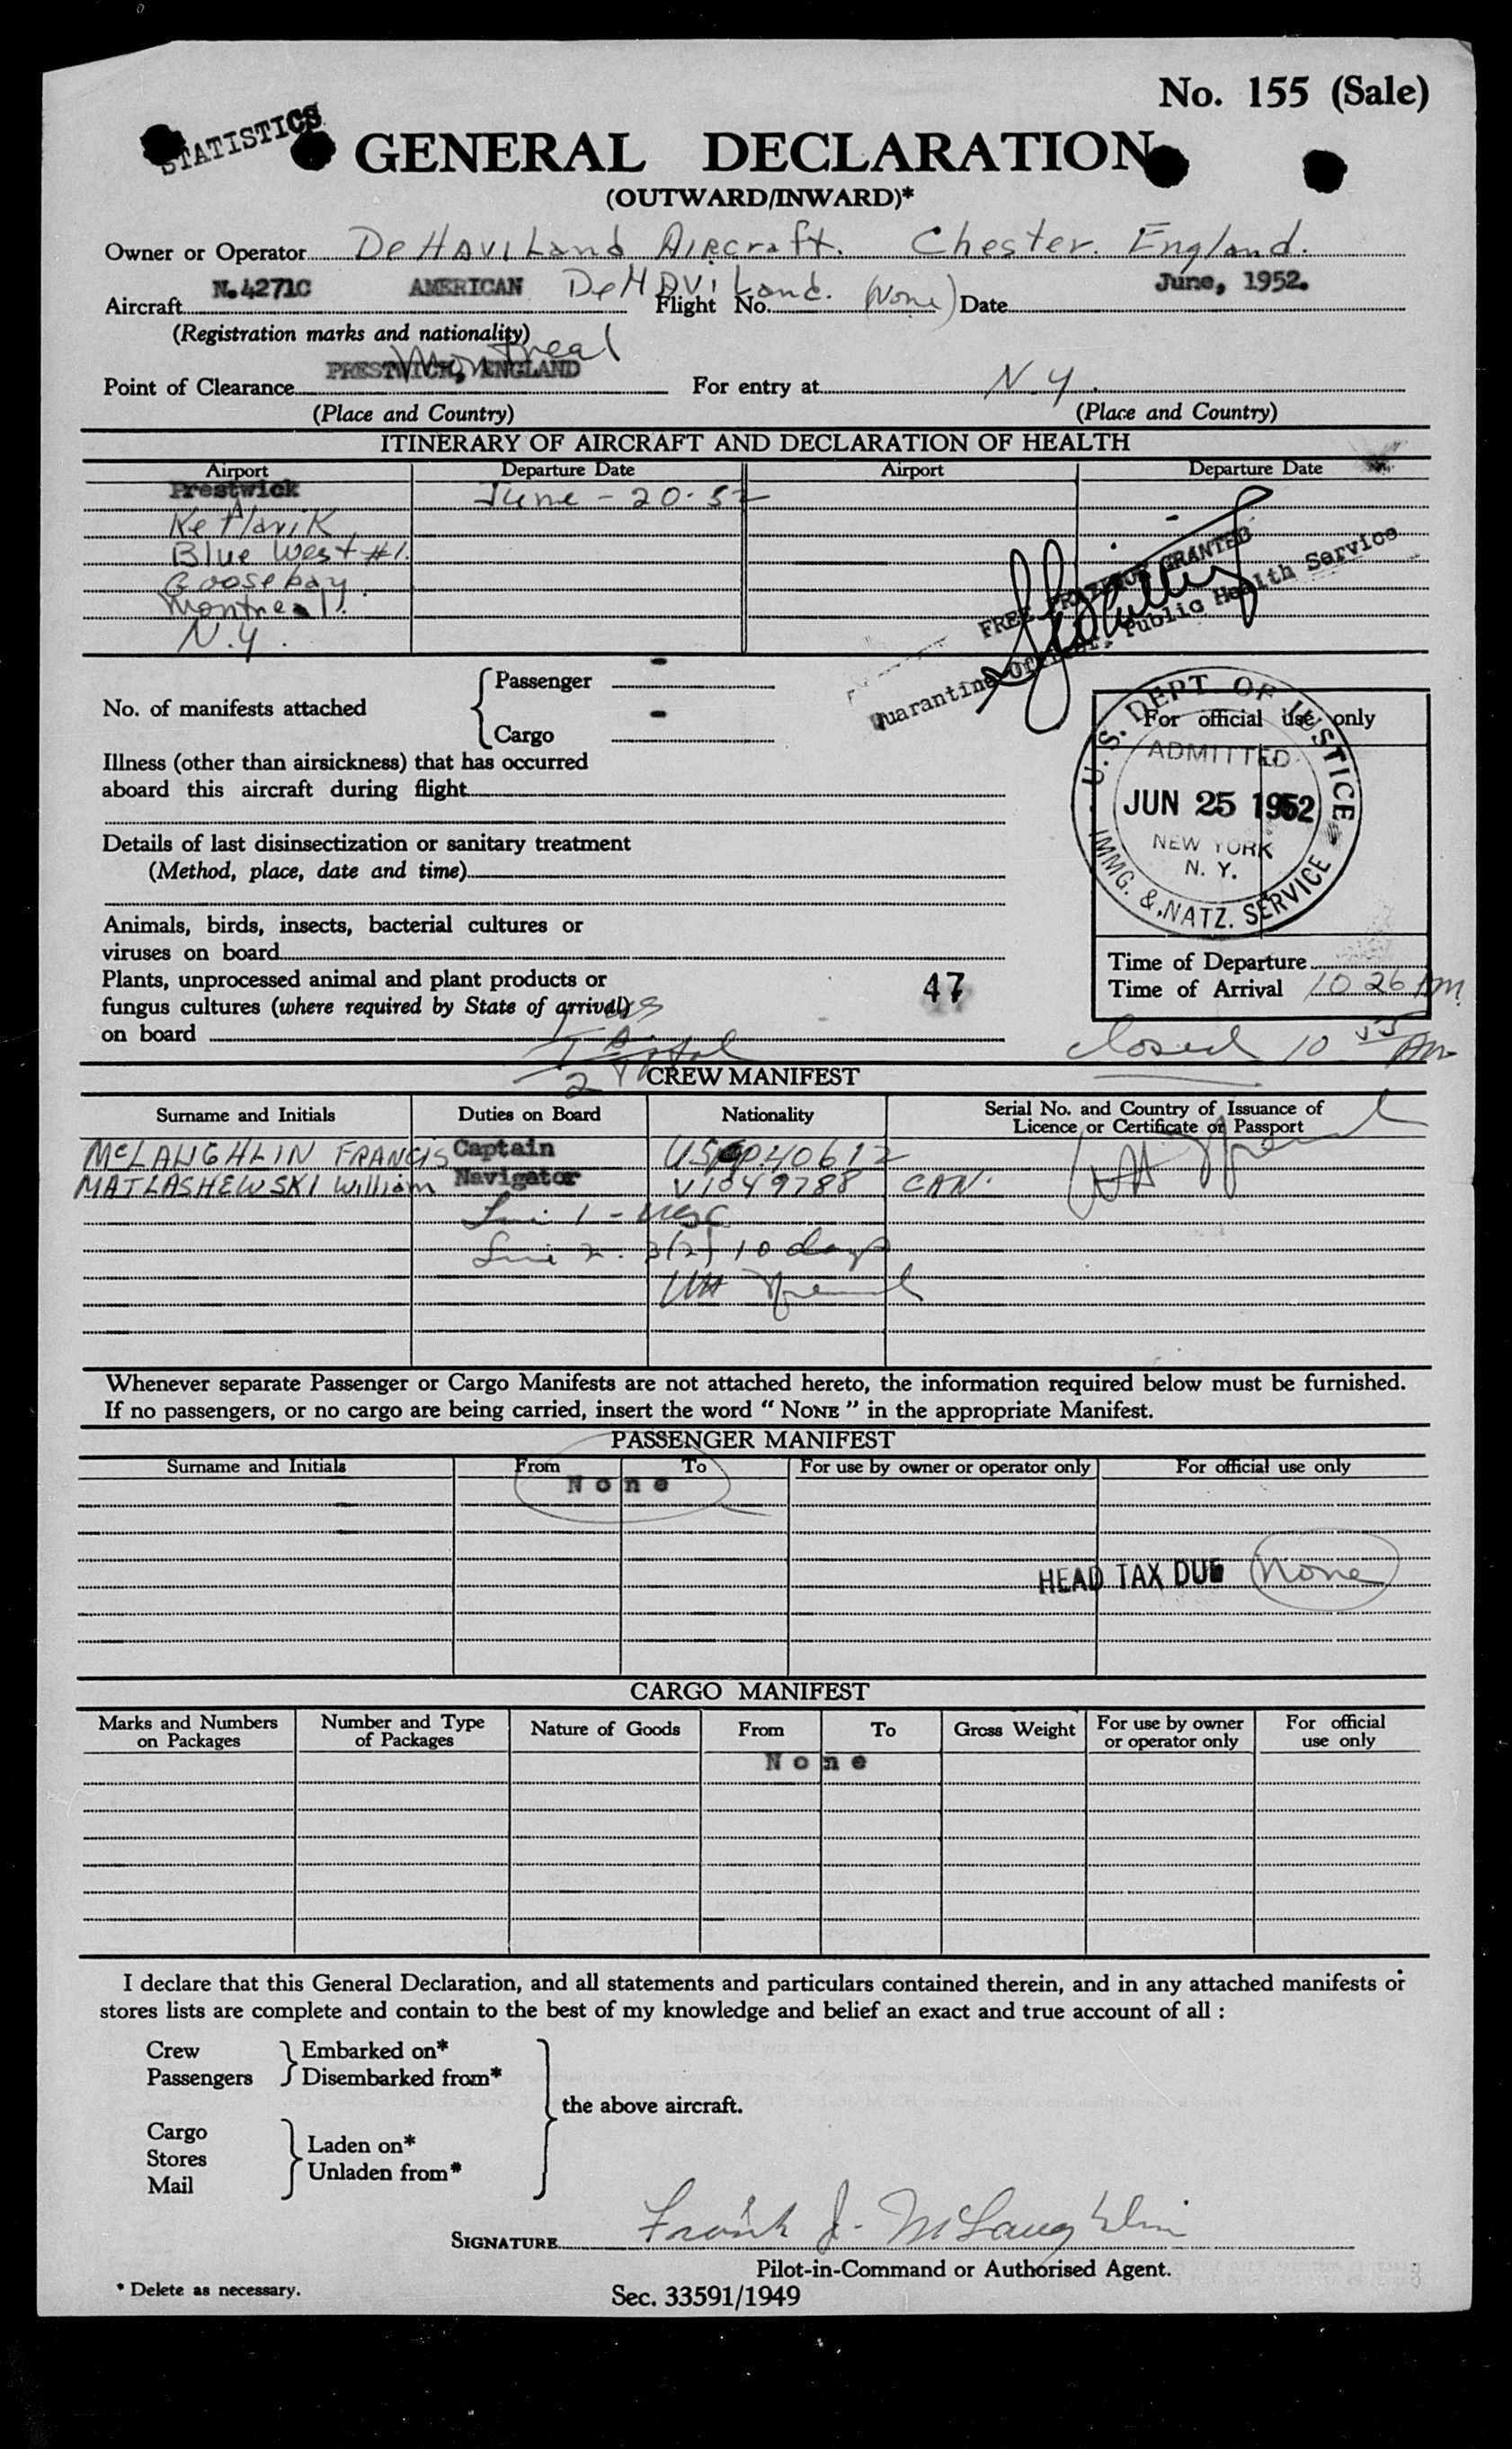 No. 155 (Sale)
STATISTICS
GENERAL DECLARATION
(OUTWARD/INWARD)*
Owner or Operator DeHAVILand AIRcraft. Chester. England.
Aircraft N.4271C AMERICAN DeHAVILand. Flight No. (None) Date June, 1952.
(Registration marks and nationality)
Montreal
Point of Clearance PRESTWICK, ENGLAND For entry at N Y.
(Place and Country) (Place and Country)
ITINERARY OF AIRCRAFT AND DECLARATION OF HEALTH
Airport Departure Date Airport Departure Date
Prestwick June - 20 - 52
Keflavik
Blue West #1.
Goosebay.
Montreal.
N.Y.
FREE PRATIQUE GRANTED
Quarantine Officer, Public Health Service
No. of manifests attached
Passenger -
Cargo -
Illness (other than airsickness) that has occurred
aboard this aircraft during flight
Details of last disinsectization or sanitary treatment
(Method, place, date and time)
Animals, birds, insects, bacterial cultures or
viruses on board
Plants, unprocessed animal and plant products or
fungus cultures (where required by State of arrival)
on board
47
For official use only
U.S. DEPT. OF JUSTICE
ADMITTED
JUN 25 1952
NEW YORK
N. Y.
IMMG. & NATZ. SERVICE
Time of Departure
Time of Arrival 10 26 AM
closed 10 55 AM
2 Total
CREW MANIFEST
Surname and Initials Duties on Board Nationality Serial No. and Country of Issuance of
Licence or Certificate or Passport
McLAUGHLIN FRANCIS Captain 40612
MATLASHEWSKI William Navigator V1049788 CAN.
Line 1 - USC
Line 2. 3(2) 10 days
Whenever separate Passenger or Cargo Manifests are not attached hereto, the information required below must be furnished.
If no passengers, or no cargo are being carried, insert the word “ NONE ” in the appropriate Manifest.
PASSENGER MANIFEST
Surname and Initials From To For use by owner or operator only For official use only
None
HEAD TAX DUE None
CARGO MANIFEST
Marks and Numbers on Packages Number and Type of Packages Nature of Goods From To Gross Weight For use by owner or operator only For official use only
None
I declare that this General Declaration, and all statements and particulars contained therein, and in any attached manifests or
stores lists are complete and contain to the best of my knowledge and belief an exact and true account of all :
Crew Embarked on*
Passengers Disembarked from*
the above aircraft.
Cargo
Stores Laden on*
Mail Unladen from*
SIGNATURE Frank J. McLaughlin
Pilot-in-Command or Authorised Agent.
* Delete as necessary.
Sec. 33591/1949